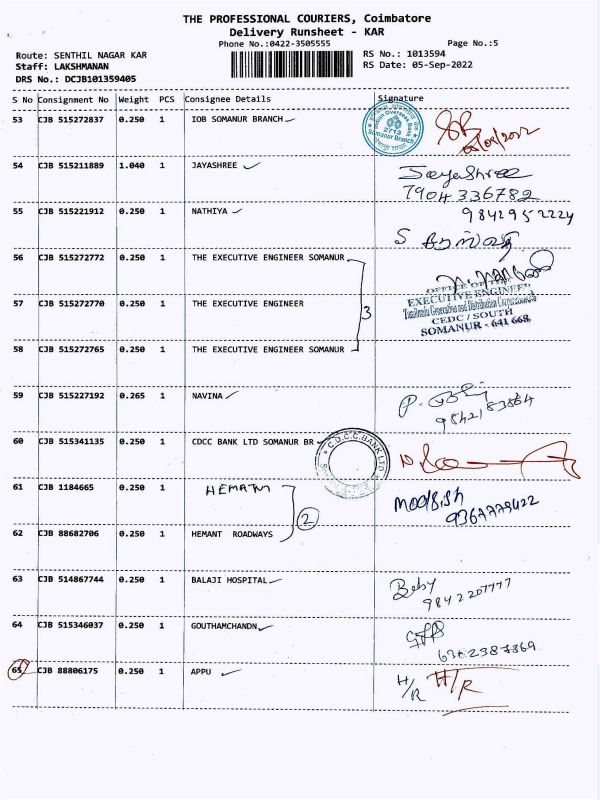 THE PROFESSIONAL COURIERS, Coimbatore
Delivery Runsheet - KAR
Phone No.:0422-3505555 Page No.:5
Route: SENTHIL NAGAR KAR RS No.: 1013594
Staff: LAKSHMANAN RS Date: 05-Sep-2022
DRS No.: DCJB101359405
S No Consignment No Weight PCS Consignee Details Signature
53 CJB 515272837 0.250 1 IOB SOMANUR BRANCH
Indian Overseas Bank
2713
Somanur Branch
54 CJB 515211889 1.040 1 JAYASHREE Jayashree
7904336782
55 CJB 515221912 0.250 1 NATHIYA 9842952224
S
56 CJB 515272772 0.250 1 THE EXECUTIVE ENGINEER SOMANUR
OFFICE OF THE
57 CJB 515272770 0.250 1 THE EXECUTIVE ENGINEER EXECUTIVE ENGINEER
3 Tamilnadu Generation and Distribution Corporation Ltd
CEDC / SOUTH
SOMANUR - 641 668.
58 CJB 515272765 0.250 1 THE EXECUTIVE ENGINEER SOMANUR
59 CJB 515227192 0.265 1 NAVINA P.
60 CJB 515341135 0.250 1 CDCC BANK LTD SOMANUR BR
C.D.C.C. BANK LTD
61 CJB 1184665 0.250 1 HEMANT
2
62 CJB 88682706 0.250 1 HEMANT ROADWAYS
63 CJB 514867744 0.250 1 BALAJI HOSPITAL Baby
9842207777
64 CJB 515346037 0.250 1 GOUTHAMCHANDN
65 CJB 88806175 0.250 1 APPU H/R H/R